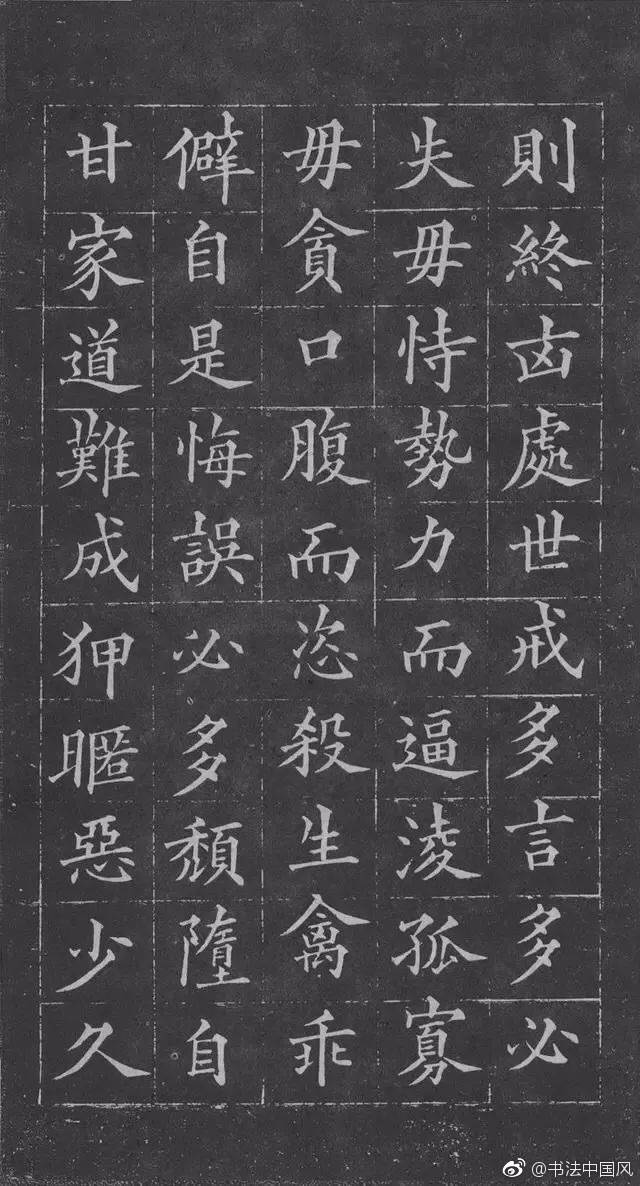 則終凶處世戒多言多必
失毋恃勢力而逼淩孤寡
毋貪口腹而恣殺生禽乖
僻自是悔誤必多頹隳自
甘家道難成狎暱惡少久
@书法中国风